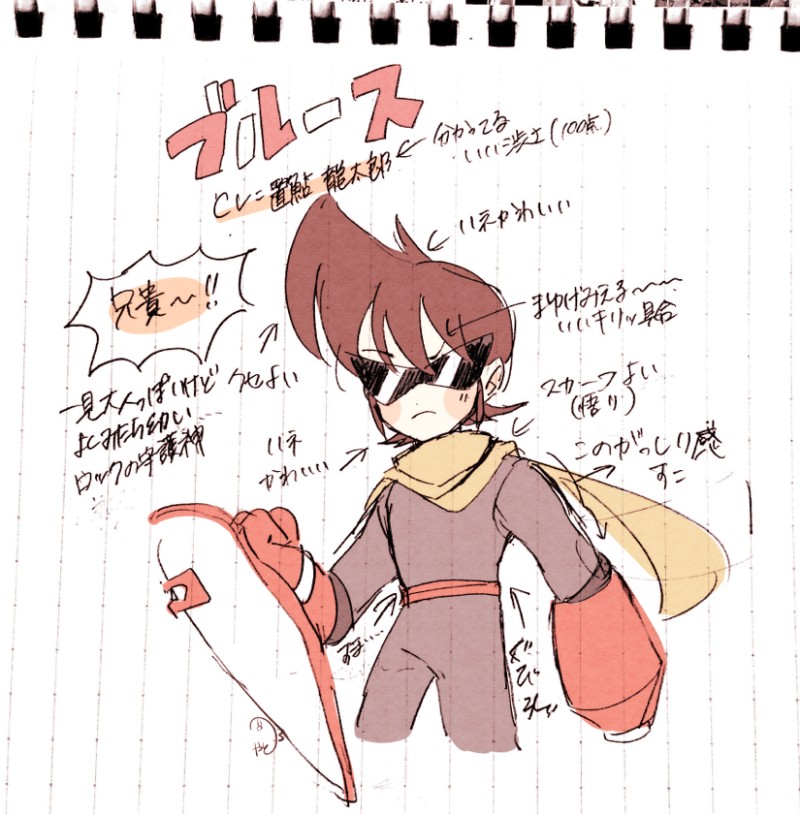 ブルース
CV=置鮎 龍太郎
分かってる
いい渋さ(100点)
ハネかわいい
兄貴〜!!
まゆげみえる〜〜〜
いいキリッ具合
クセよい
一見大人っぽいけど
よくみたら幼い
ロックの守護神
スカーフよい
(悟り)
ハネ
かわいい
このがっしり感
すこ